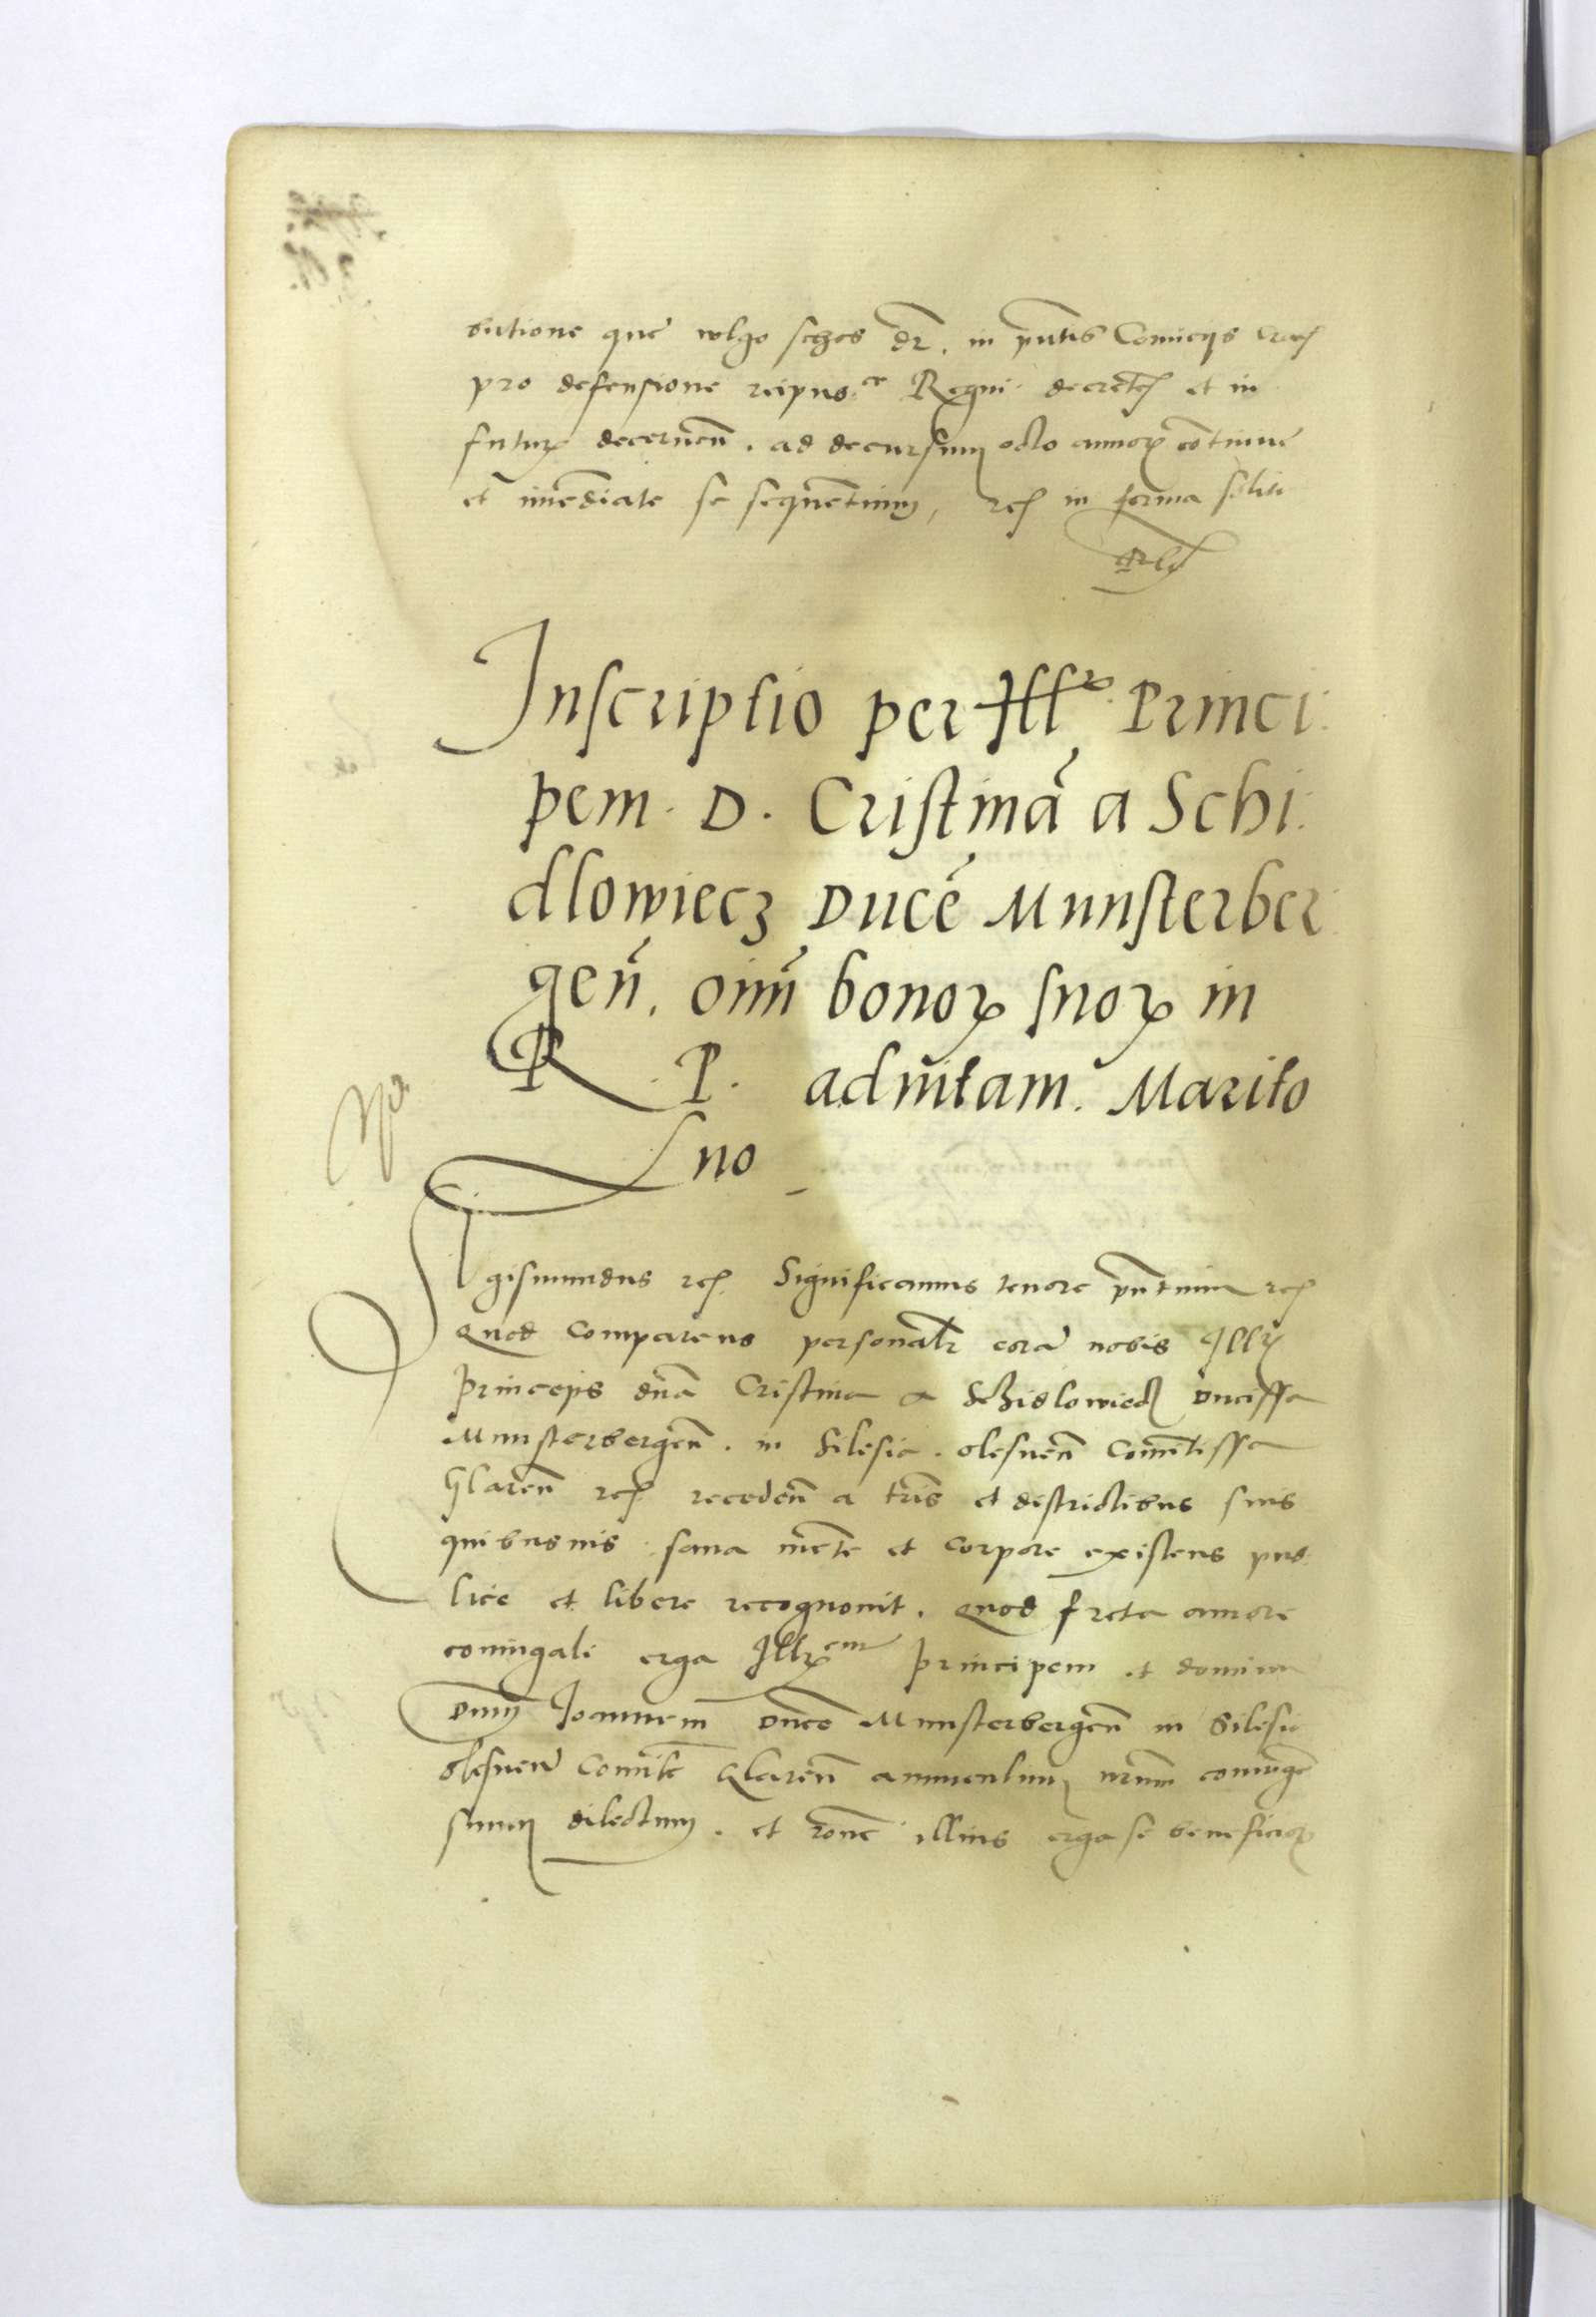 butione que wlgo schos dr̃. in pñtib Comicijs
pro defensione reipub.ce Regni decretꝭ et in
futurꝭ decernen̄. ad decursum octo annoꝝ cōtinue
et im̄ediate se sequentium, rcꝭ in forma solita
Inscriptio per Illꝝ. Princi:
pem. D. Cristinā a Schi:
dlowiecz Ducē Munsterber
gen̄. oim̄ bonoꝝ suoꝝ in
R. P. ad vitam. Marito
suo
Sigismundus rcꝭ. Significamus tenore pn̄tium rcꝭ
Quod comparens personalr̄ corā nobis Illꝝ
princeps dn̄a Cristina a Schidlowiecz Ducissa
Munsterbergen̄. in Silesia. olesnen̄ Comitissa
Glacen̄ rcꝭ receden̄ a tr̄is et districtibus suis
quibusuis. sana mēte et corpore existens pub
lice et libere recognouit. Quod freta amore
coniugali erga Illꝝem Principem et dominum
Dnum Joannem Duce Munsterbergen̄ in Silesia
olesnen̄ Comite Glacen̄ auunculum nr̄um coniuge
suum dilectum. et rōne illius erga se beneficioꝝ